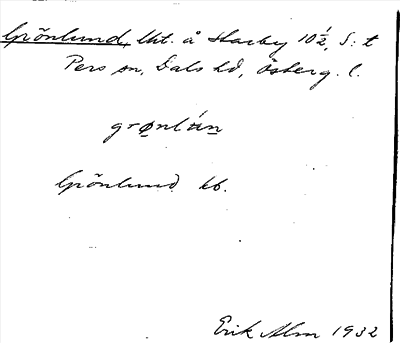 Grönlund, lht. å Harby 10 1/2, S:t
Pers sn, Dals hd, Österg. l.
grønlún
Grönlund kb.
Erik Alm 1932